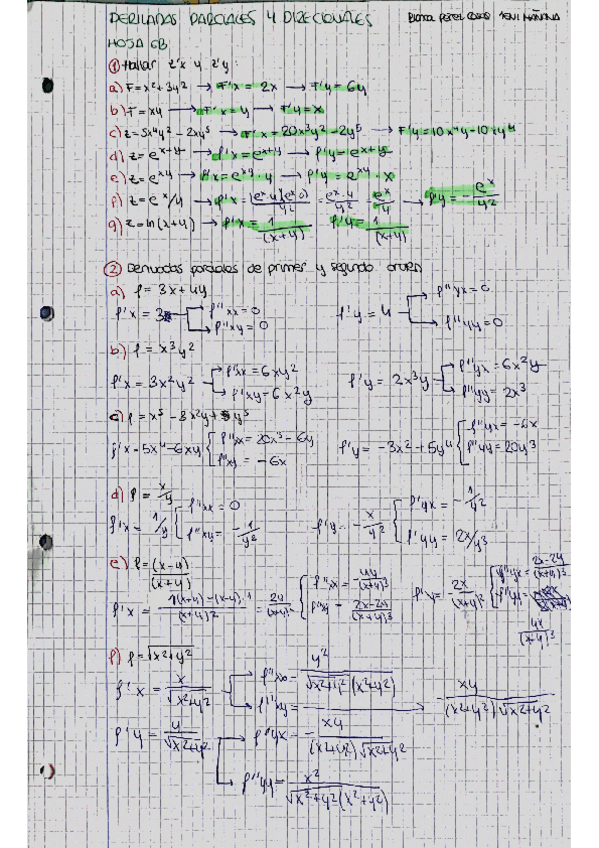 DERIVADAS PARCIALES Y DIRECIONALES
HOJA 6B
① Hallar z'x y z'y:
a) F=x²+3y² → F'x = 2x → F'y = 6y
b) F=xy → F'x = y → F'y = x
c) z=5x⁴y² - 2xy⁵ → F'x = 20x³y² - 2y⁵ → F'y = 10x⁴y - 10xy⁴
d) z=e^(x+y) → f'x = e^(x+y) → f'y = e^(x+y)
e) z=e^(xy) → f'x = e^(xy)·y → f'y = e^(xy)·x
f) z=e^x/y → f'x = = (e^x·y)/y² = e^x/y → f'y = -e^x/y²
g) z=ln(x+y) → f'x = 1/(x+y) f'y = 1/(x+y)
② Derivadas parciales de primer y segundo orden
a) f = 3x+4y
f'x = 3 → f''xx = 0 → f''xy = 0 f'y = 4 → f''yx = 0 → f''yy = 0
b) f = x³y²
f'x = 3x²y² → f'xx = 6xy² → f'xy = 6x²y f'y = 2x³y → f''yx = 6x²y → f''yy = 2x³
c) f = x⁵ - 3x²y + y⁵
f'x = 5x⁴ - 6xy { f''xx = 20x³ - 6y f''xy = -6x f'y = -3x² + 5y⁴ { f''yx = -6x f''yy = 20y³
d) f = x/y
f'x = 1/y { f''xx = 0 f''xy = -1/y² f'y = -x/y² { f'yx = -1/y² f'yy = 2x/y³
e) f = (x-y)/(x+y)
f'x = (1(x+y)-(x-y)·1)/(x+y)² = 2y/(x+y)² { f''xx = -4y/(x+y)³ f''xy = (2x-2y)/(x+y)³ f'y = -2x/(x+y)² { f''yx = (2x-2y)/(x+y)³ f''yy = 4x/(x+y)³
f) f = √(x²+y²)
f'x = x/√(x²+y²) → f''xx = y²/(√(x²+y²)(x²+y²)) → f''xy = → -xy/((x²+y²)√(x²+y²))
f'y = y/√(x²+y²) → f''yx = -xy/((x²+y²)√(x²+y²))
→ f''yy = x²/(√(x²+y²)(x²+y²))